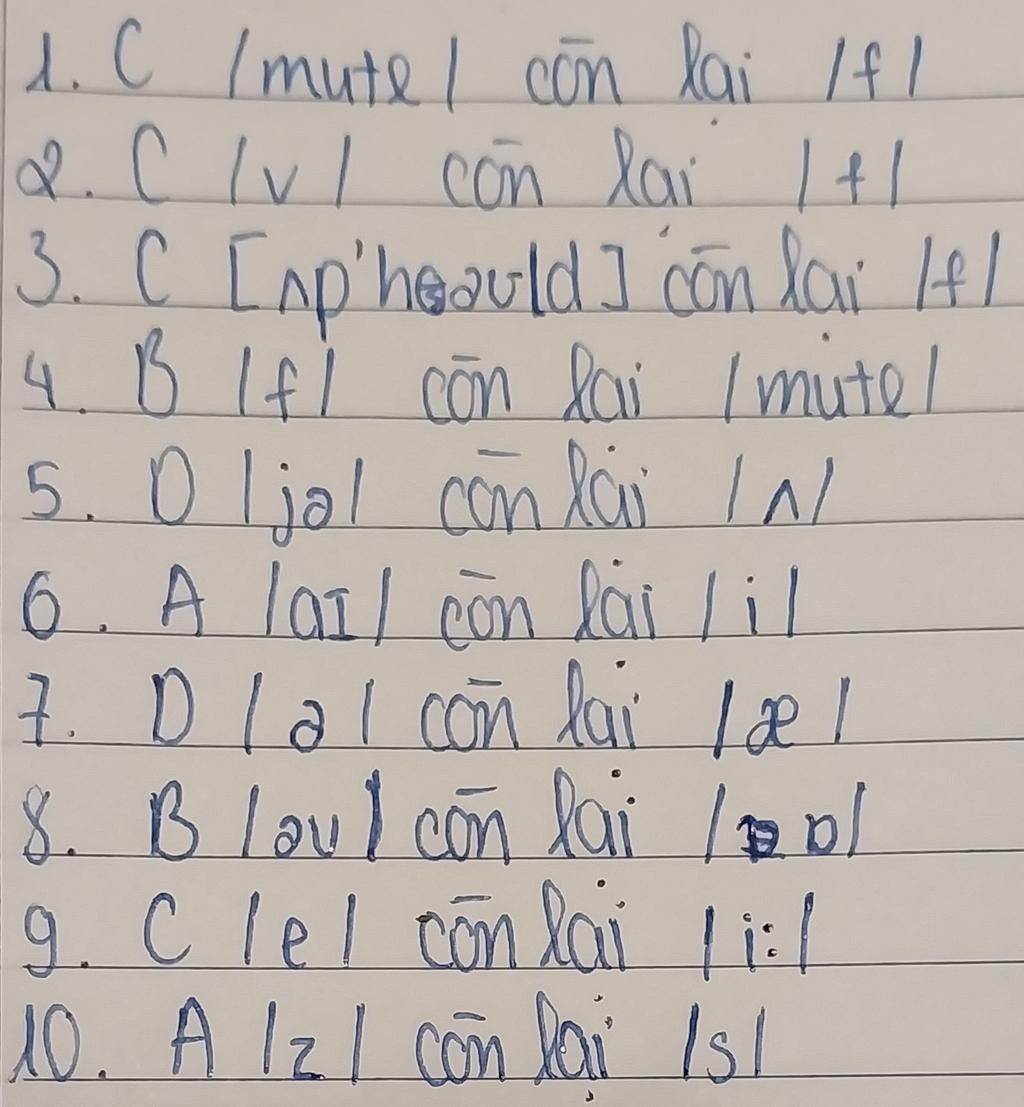 1. C /mute/ còn lại /f/
2. C /v/ còn lại /f/
3. C [ʌp'həʊld] còn lại /f/
4. B /f/ còn lại /mute/
5. D /jə/ còn lại /ʌ/
6. A /aɪ/ còn lại /i/
7. D /ə/ còn lại /æ/
8. B /əu/ còn lại /ɒ/
9. C /e/ còn lại /i:/
10. A /z/ còn lại /s/